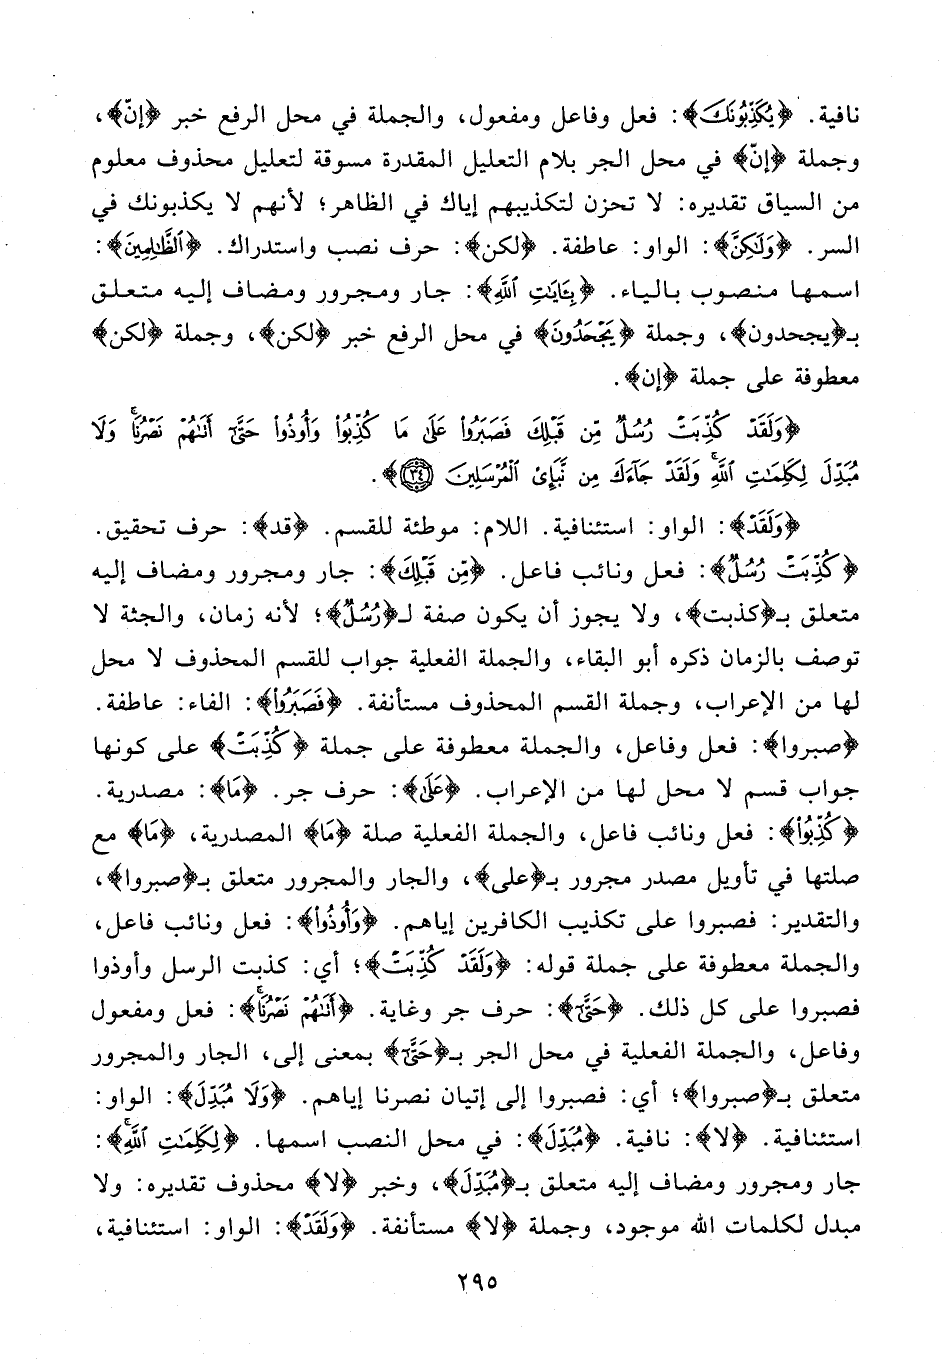 نافية. ﴿يُكَذِّبُونَكَ﴾: فعل وفاعل ومفعول، والجملة في محل الرفع خبر ﴿إنّ﴾،
وجملة ﴿إنّ﴾ في محل الجر بلام التعليل المقدرة مسوقة لتعليل محذوف معلوم
من السياق تقديره: لا تحزن لتكذيبهم إياك في الظاهر؛ لأنهم لا يكذبونك في
السر. ﴿وَلَٰكِنَّ﴾: الواو: عاطفة. ﴿لكن﴾: حرف نصب واستدراك. ﴿ٱلظَّٰلِمِينَ﴾:
اسمها منصوب بالياء. ﴿بِـَٔايَٰتِ ٱللَّهِ﴾: جار ومجرور ومضاف إليه متعلق
بـ﴿يجحدون﴾، وجملة ﴿يَجْحَدُونَ﴾ في محل الرفع خبر ﴿لكن﴾، وجملة ﴿لكن﴾
معطوفة على جملة ﴿إن﴾.
﴿وَلَقَدْ كُذِّبَتْ رُسُلٌ مِّن قَبْلِكَ فَصَبَرُوا۟ عَلَىٰ مَا كُذِّبُوا۟ وَأُوذُوا۟ حَتَّىٰٓ أَتَىٰهُمْ نَصْرُنَا ۚ وَلَا
مُبَدِّلَ لِكَلِمَٰتِ ٱللَّهِ ۚ وَلَقَدْ جَآءَكَ مِن نَّبَإِى۟ ٱلْمُرْسَلِينَ ٣٤﴾.
﴿وَلَقَدْ﴾: الواو: استئنافية. اللام: موطئة للقسم. ﴿قد﴾: حرف تحقيق.
﴿كُذِّبَتْ رُسُلٌ﴾: فعل ونائب فاعل. ﴿مِّن قَبْلِكَ﴾: جار ومجرور ومضاف إليه
متعلق بـ﴿كذبت﴾، ولا يجوز أن يكون صفة لـ﴿رُسُلٌ﴾؛ لأنه زمان، والجثة لا
توصف بالزمان ذكره أبو البقاء، والجملة الفعلية جواب للقسم المحذوف لا محل
لها من الإعراب، وجملة القسم المحذوف مستأنفة. ﴿فَصَبَرُوا۟﴾: الفاء: عاطفة.
﴿صبروا﴾: فعل وفاعل، والجملة معطوفة على جملة ﴿كُذِّبَتْ﴾ على كونها
جواب قسم لا محل لها من الإعراب. ﴿عَلَىٰ﴾: حرف جر. ﴿مَا﴾: مصدرية.
﴿كُذِّبُوا۟﴾: فعل ونائب فاعل، والجملة الفعلية صلة ﴿مَا﴾ المصدرية، ﴿مَا﴾ مع
صلتها في تأويل مصدر مجرور بـ﴿على﴾، والجار والمجرور متعلق بـ﴿صبروا﴾،
والتقدير: فصبروا على تكذيب الكافرين إياهم. ﴿وَأُوذُوا۟﴾: فعل ونائب فاعل،
والجملة معطوفة على جملة قوله: ﴿وَلَقَدْ كُذِّبَتْ﴾؛ أي: كذبت الرسل وأوذوا
فصبروا على كل ذلك. ﴿حَتَّىٰٓ﴾: حرف جر وغاية. ﴿أَتَىٰهُمْ نَصْرُنَا ۚ﴾: فعل ومفعول
وفاعل، والجملة الفعلية في محل الجر بـ﴿حَتَّىٰٓ﴾ بمعنى إلى، الجار والمجرور
متعلق بـ﴿صبروا﴾؛ أي: فصبروا إلى إتيان نصرنا إياهم. ﴿وَلَا مُبَدِّلَ﴾: الواو:
استئنافية. ﴿لا﴾: نافية. ﴿مُبَدِّلَ﴾: في محل النصب اسمها. ﴿لِكَلِمَٰتِ ٱللَّهِ ۚ﴾:
جار ومجرور ومضاف إليه متعلق بـ﴿مُبَدِّلَ﴾، وخبر ﴿لا﴾ محذوف تقديره: ولا
مبدل لكلمات الله موجود، وجملة ﴿لا﴾ مستأنفة. ﴿وَلَقَدْ﴾: الواو: استئنافية،
٢٩٥